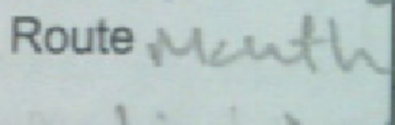 Route Mouth